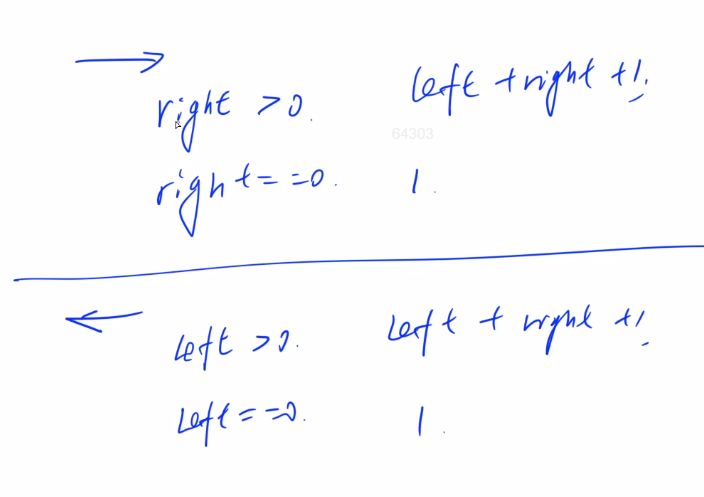 →
right >0. left + right +1.
64303
right ==0. 1.
←
left >0. left + right +1.
left ==0. 1.